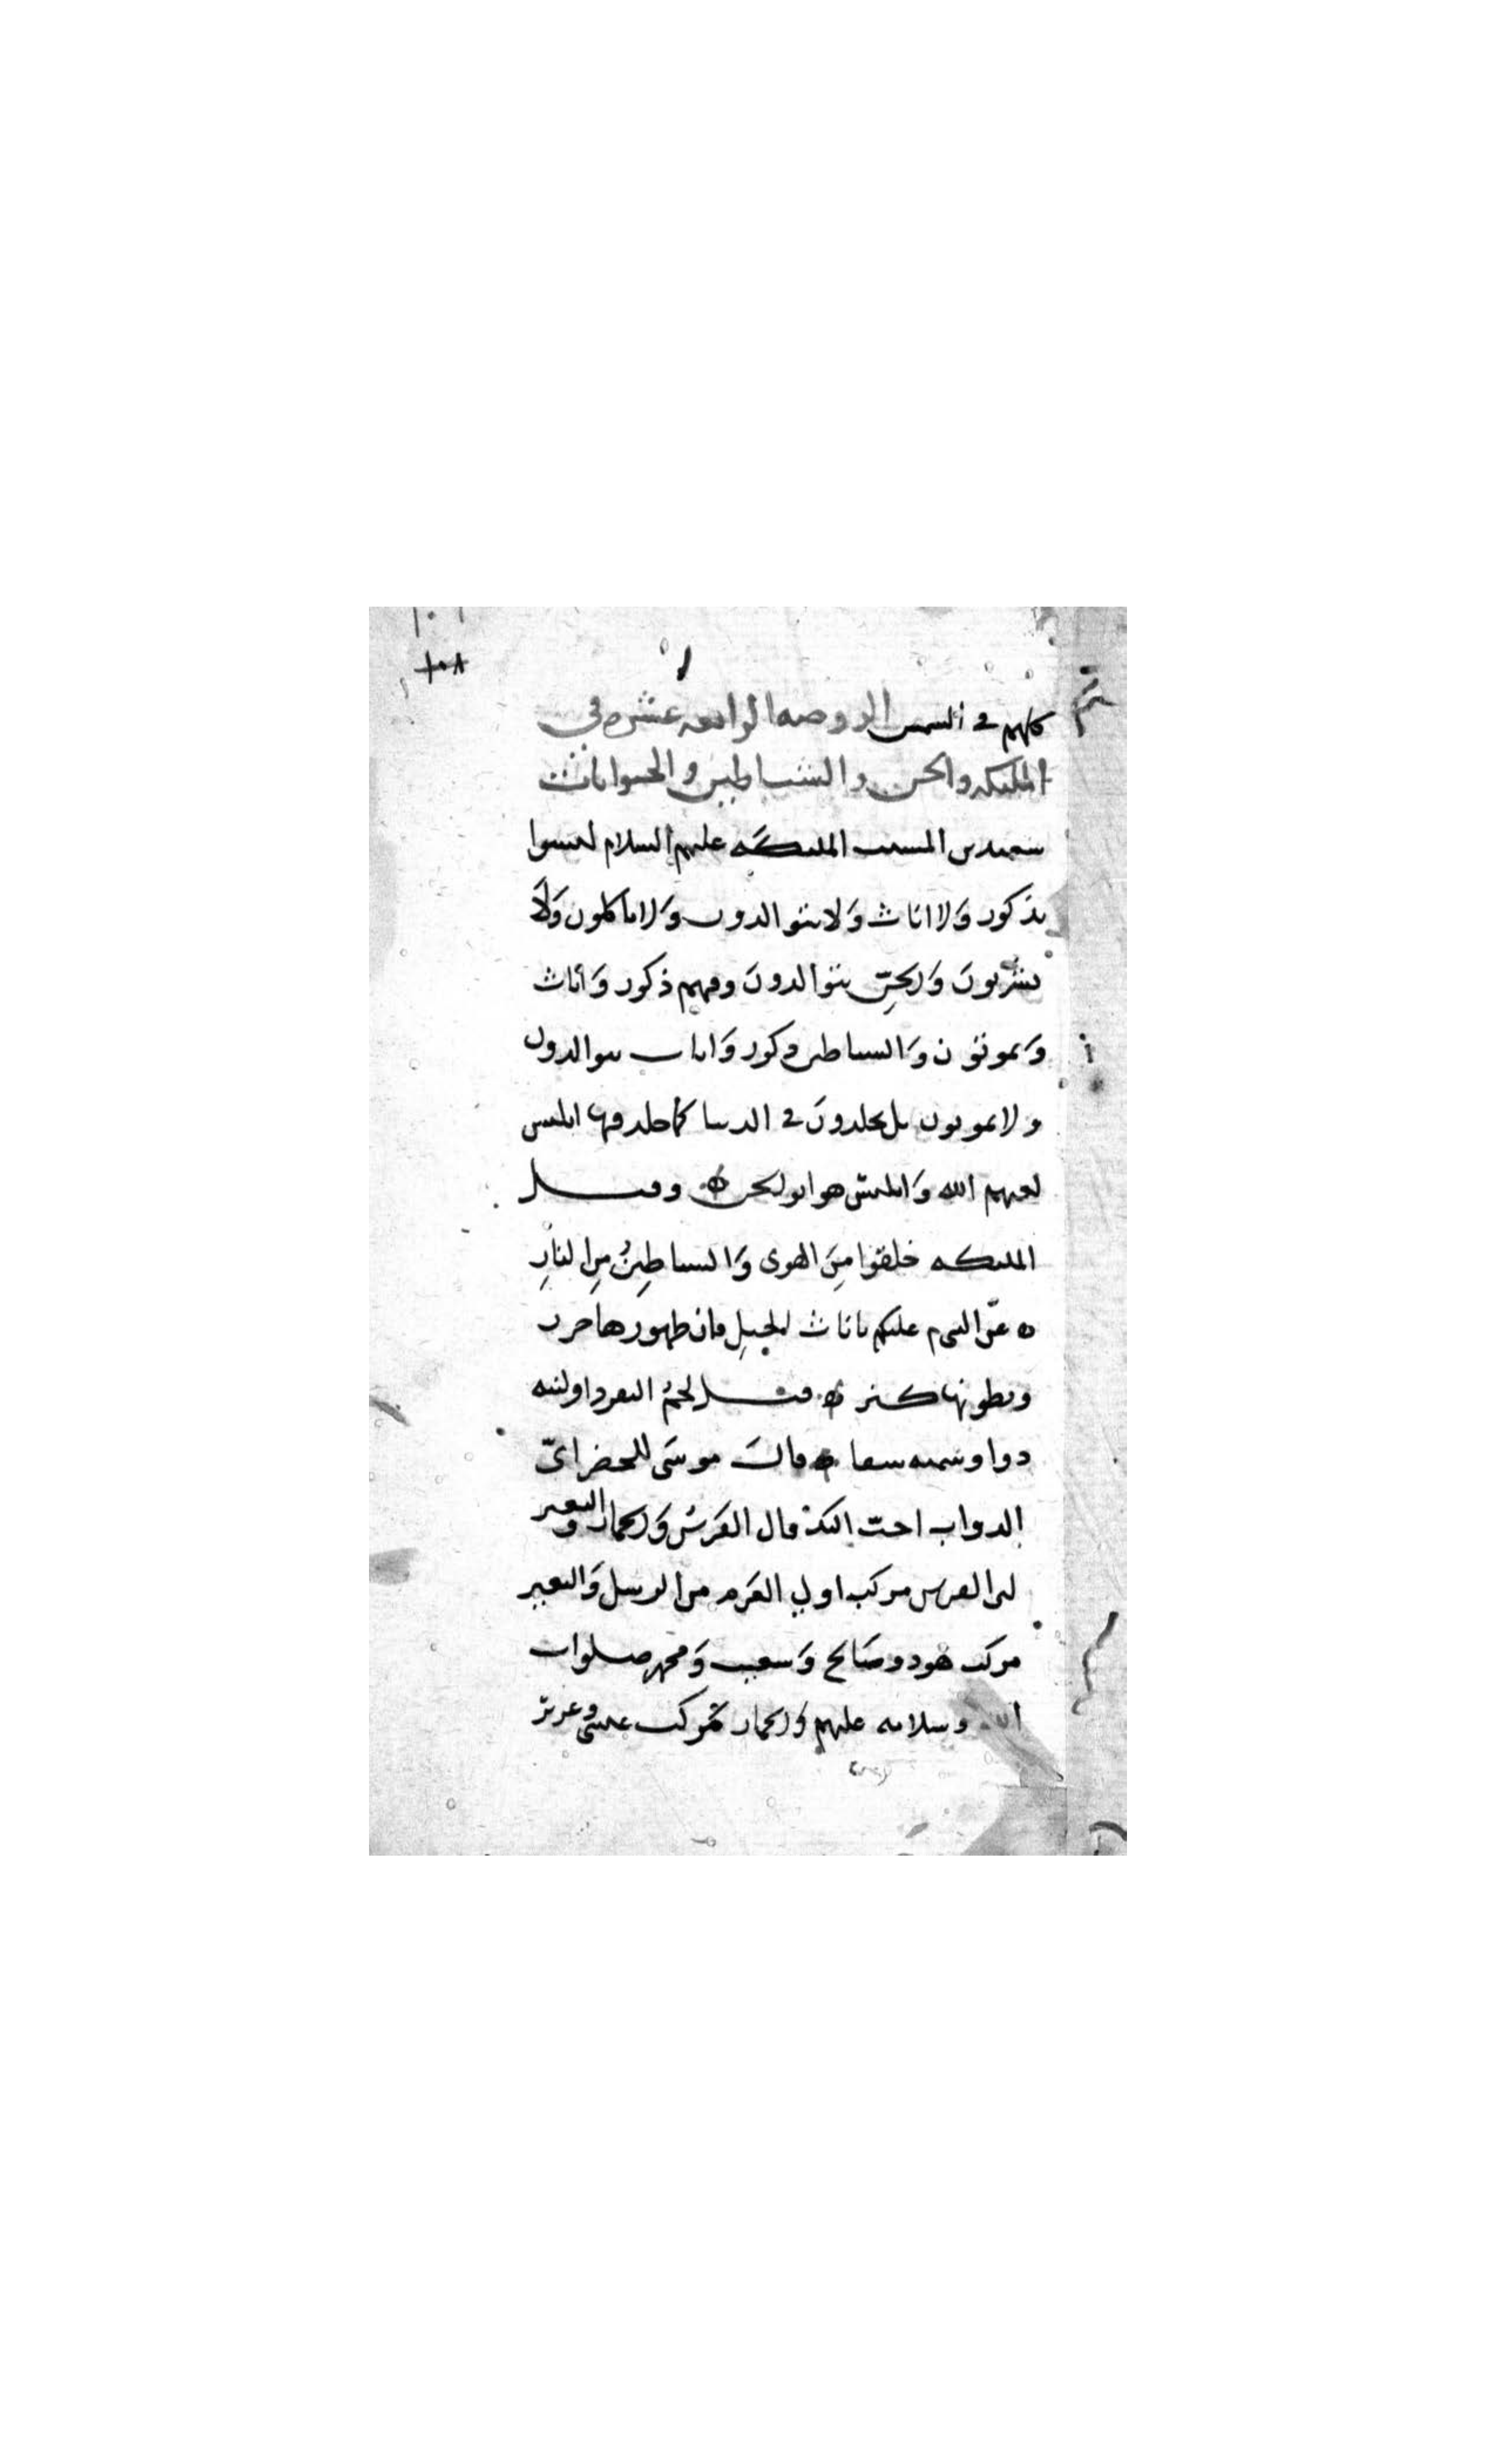 ١٠٨
كلهم في الشمس الروضه الرابعه عشره في
الملىكه والجن والشياطين والحيوانات
سعيد بن المسيب الملىكه عليهم السلام ليسوا
بذكور وَلا اناث وَلا يتوالدون وَلا ياكلون وَلَا
يشربونَ وَالجنّ يتوالدونَ وفيهم ذكور وَاناث
وَيموتون وَالشياطين ذكور وَاناث يتوالدون
ولا يموتون بل يخلدونَ في الدنيا كما خلد فيها ابليس
لعنهم الله وَابليس هو ابو الجن وقيل
الملىكه خلقوا مِنَ الهوى وَالشياطِينُ مِن النارِ
عن النبي م عليكم باناث الخيلِ فان ظهورها حرز
وبطونها كنز قيل لحمُ البقر داولبنه
دوا وسمنه شفا قالَ موسَى للخضر ايّ
الدواب احبّ اليك قال الفرسُ وَالحمار والبعير
لان الفرس مركب اولي العزم من الرسل وَالبعير
مركب هود وصَالح وَشعيب وَمحمد صلوات
الله وسلامه عليهم وَالحمار مركب عيسى وعزير